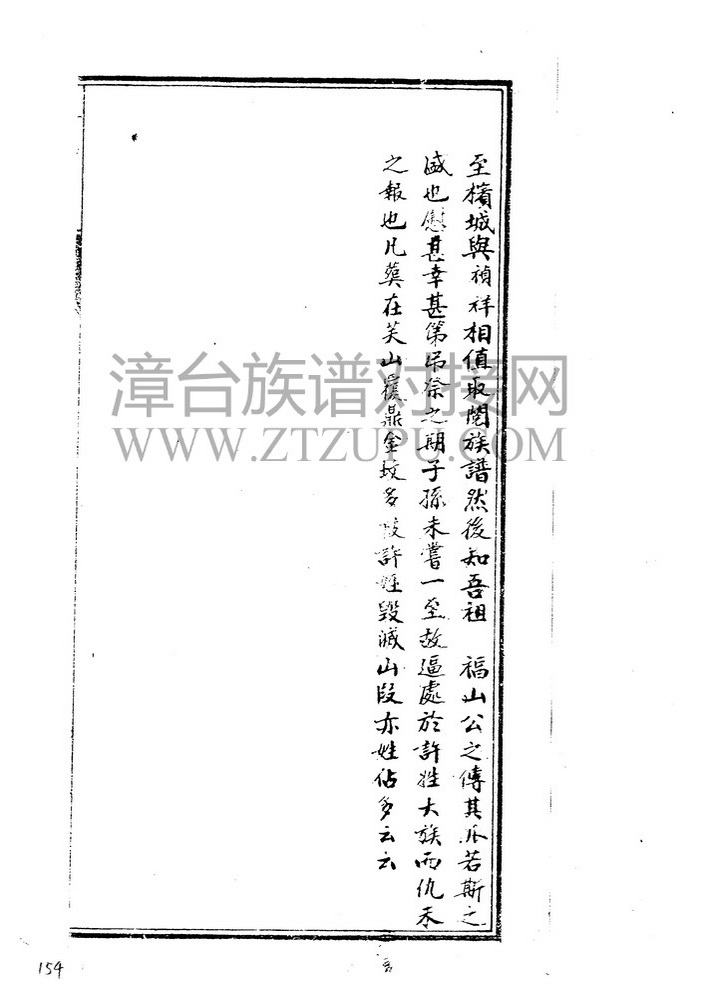 至檳城與禎祥相值取閱族譜然後知吾祖 福山公之傳其派若斯之
盛也慰甚幸甚第吊祭之期子孫未嘗一至故逼處於許姓大族而仇未
之報也凡葬在芙山覆鼎金坟多 許姓毀滅山段亦姓佔多云云
漳台族谱对接网
WWW.ZTZUPU.COM
154